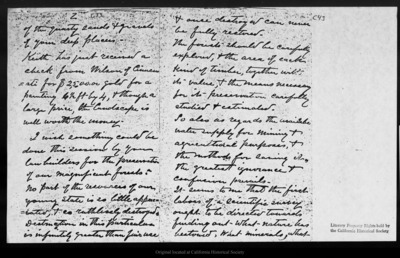 2
of the gravity sands & gravels
of your deep placers -
Keith has just received a
check from Wilson of Cincin
nati for $ 2500 gold for a
painting 6 ft by 4, & though a
large price, the landscape is
well worth the money.
I wish something could be
done this session by your
law builders for the preservation
of our magnificent forests -
No part of the resources of our
young state is so little appre
ciated, & so ruthlessly destroyed
Destruction in this particular
is infinitely greater than fair use
& once destroyed can never
be fully restored.
The forests should be carefully
explored, & the area of each
kind of timber, together with
its value, & the means necessary
for its preservation carefully
studied & estimated.
So also as regards the available
water supply for mining &
agricultural purposes, &
the methods for saving
the greatest ignorance &
confusion prevails.
It seems to me that the first
labors of a scientific society
ought to be directed towards
finding out what nature has
bestowed, what minerals, what
Literary Property Rights held by
the California Historical Society
Original located at California Historical Society